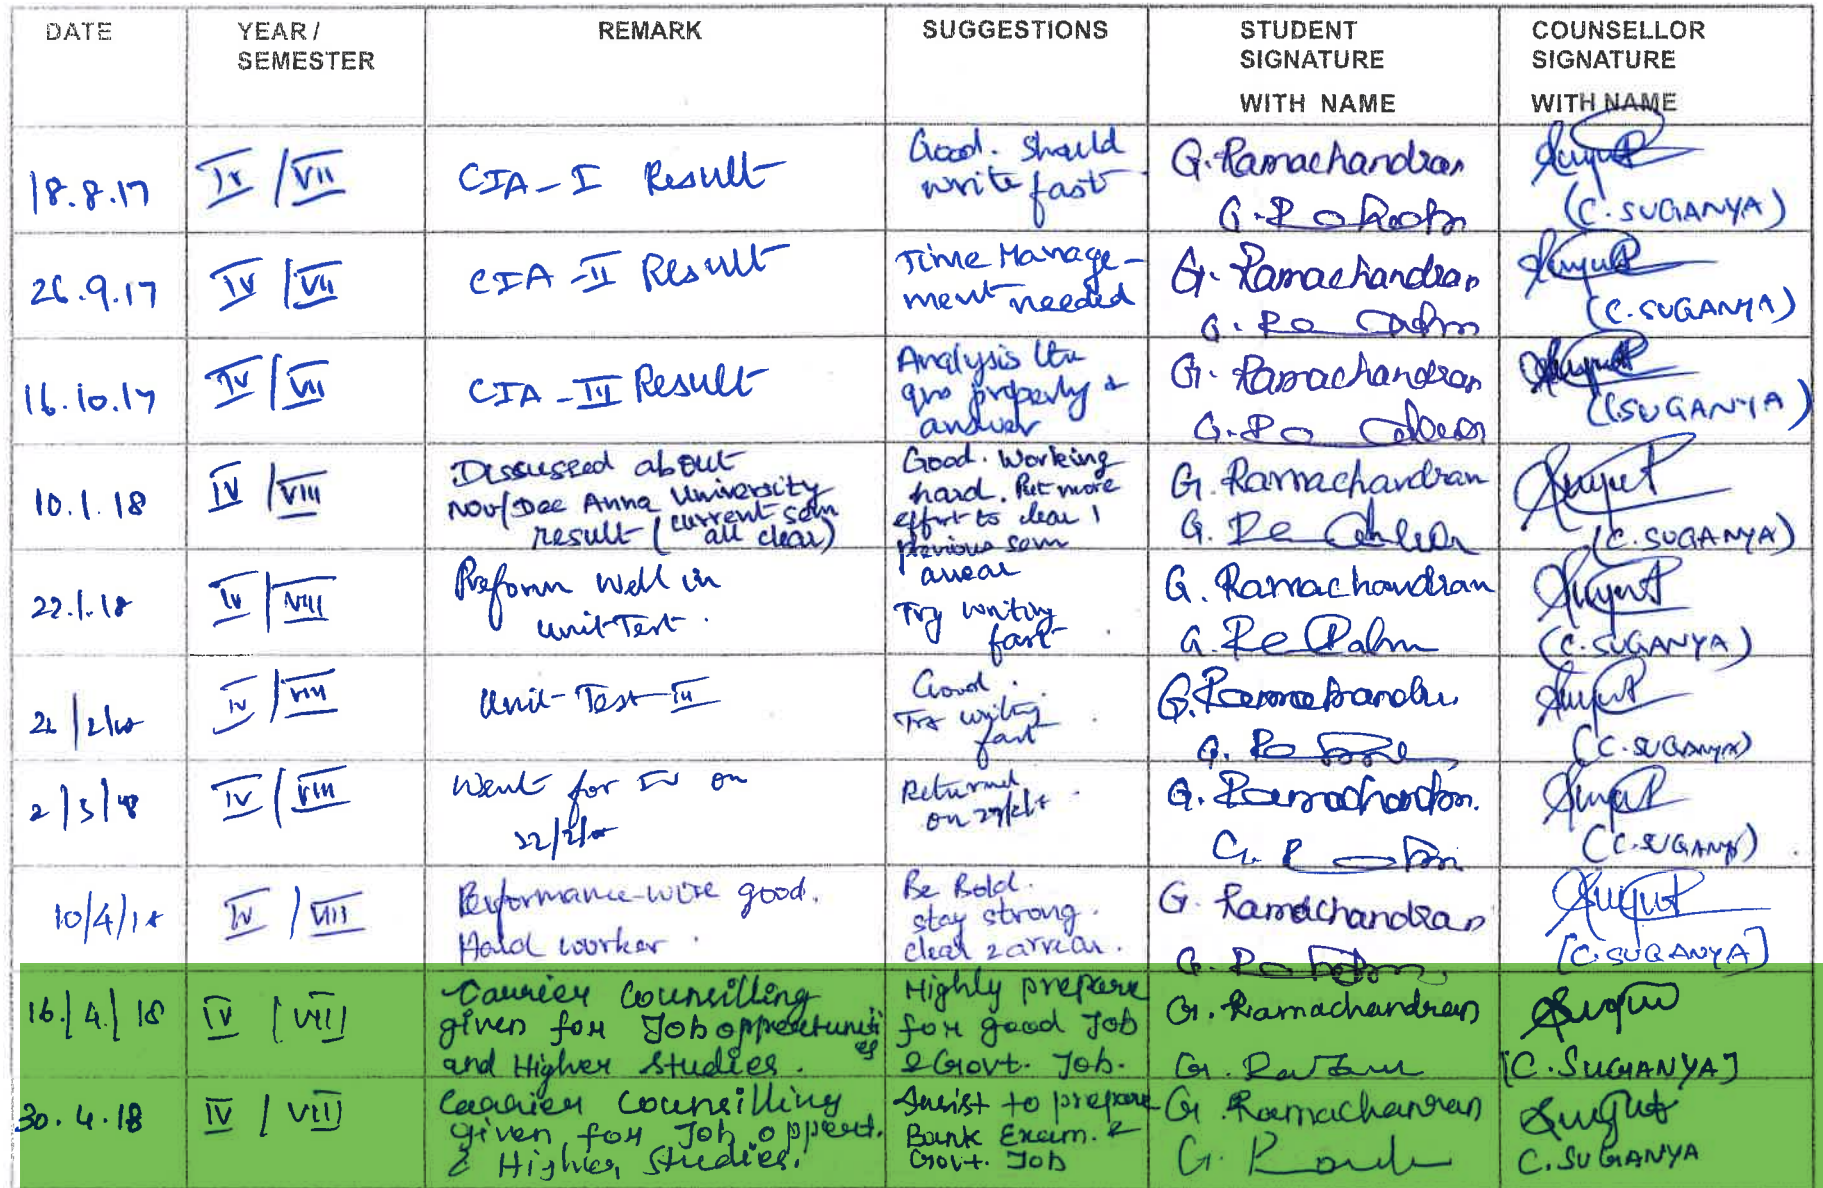 DATE
YEAR /
SEMESTER
REMARK
SUGGESTIONS
STUDENT
SIGNATURE
WITH NAME
COUNSELLOR
SIGNATURE
WITH NAME
18.8.17
IV / VII
CIA - I Result
Good. Should
write fast
G. Ramachandran
(C. SUGANYA)
26.9.17
IV / VII
CIA - II Result
Time Manage -
ment needed
G. Ramachandran
(C. SUGANYA)
16.10.17
IV / VII
CIA - III Result
Analysis the
properly &
answer
G. Ramachandran
(C. SUGANYA)
10.1.18
IV / VIII
Discussed about
Nov/Dec Anna University
result (current sem
all clear)
Good. Working
hard. Put more
effort to clear 1
previous sem
arrear
G. Ramachandran
(C. SUGANYA)
22.1.18
IV / VIII
Preform well in
unit Test.
Try writing
fast.
G. Ramachandran
(C. SUGANYA)
IV / VIII
Unit - Test - III
Good.
Try writing
fast.
(C. SUGANYA)
2/3/18
IV / VIII
Went for IV on
22/2/18
Returned
on
G. Ramachandran.
(C. SUGANYA)
10/4/18
IV / VIII
Performance-wise good.
Hard worker.
Be Bold.
stay strong.
clear 2 arrear.
G. Ramachandran
[C. SUGANYA]
16/4/18
IV / VIII
Caurier Councilling
given for Job opportuniti
es
and Higher Studies.
Highly prepare
for good Job
& Govt. Job.
G. Ramachandran
[C. SUGANYA]
30.4.18
IV / VIII
Caurier Councilling
given for Job oppert.
& Higher Studies.
Insist to prepare
Bank Exam. &
Govt. Job
G. Ramachanran
C. SUGANYA